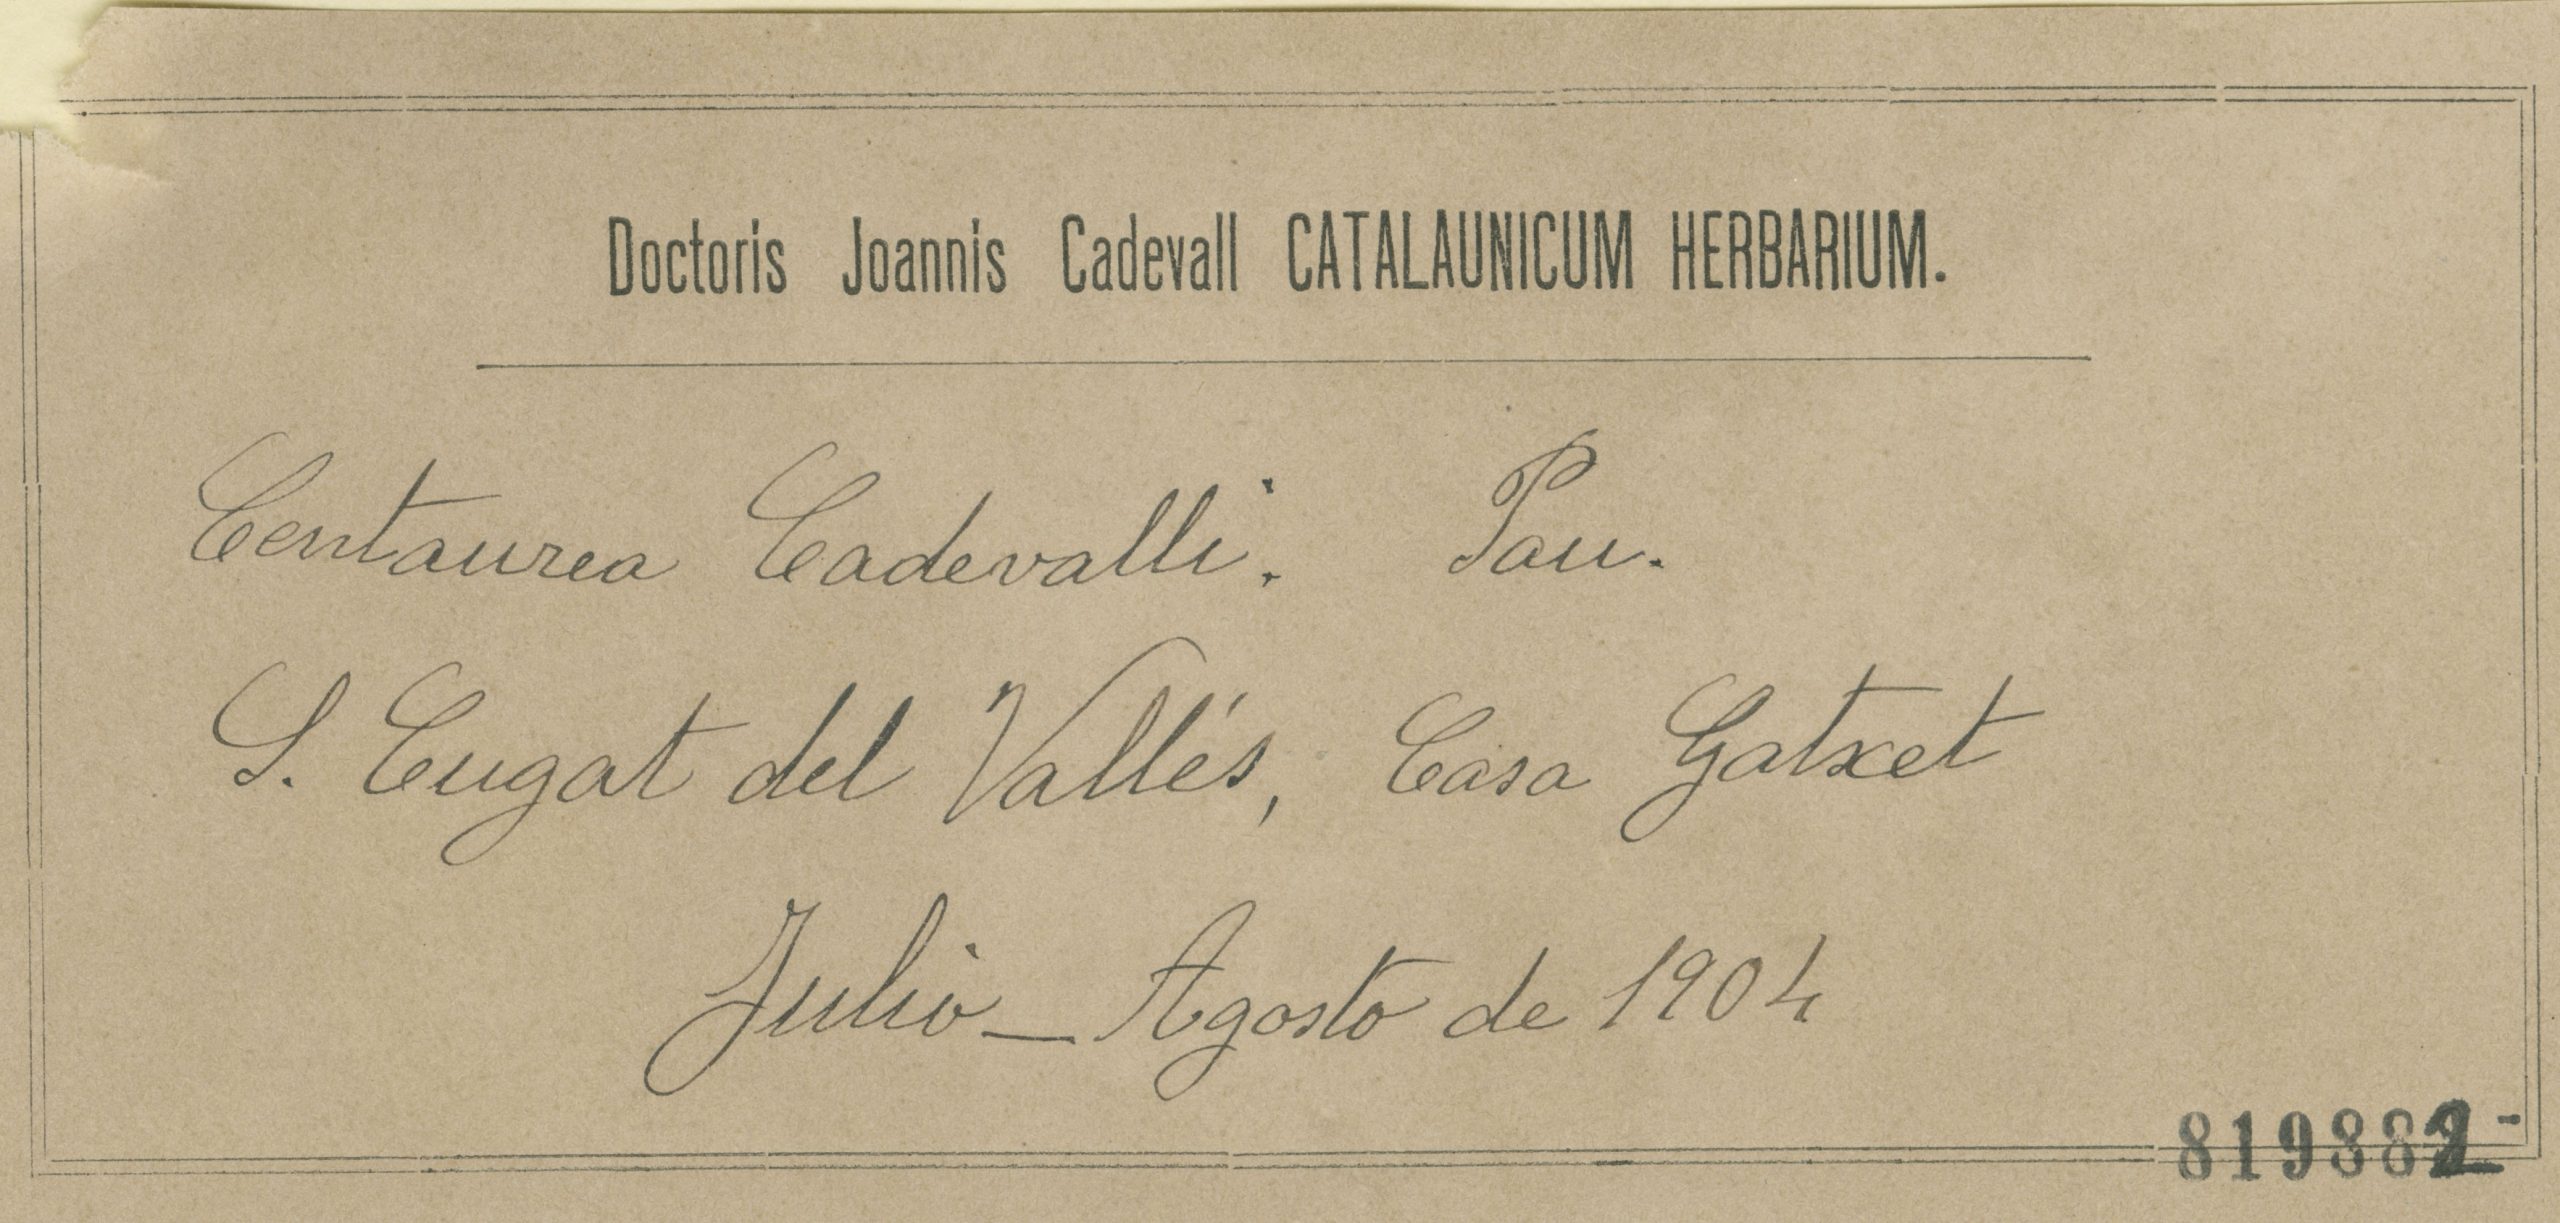 Doctoris Joannis Cadevall CATALAUNICUM HERBARIUM.
Centaurea Cadevalli. Pau.
S. Cugat del Vallés, Casa Gatxet
Julio_ Agosto de 1904
819882-